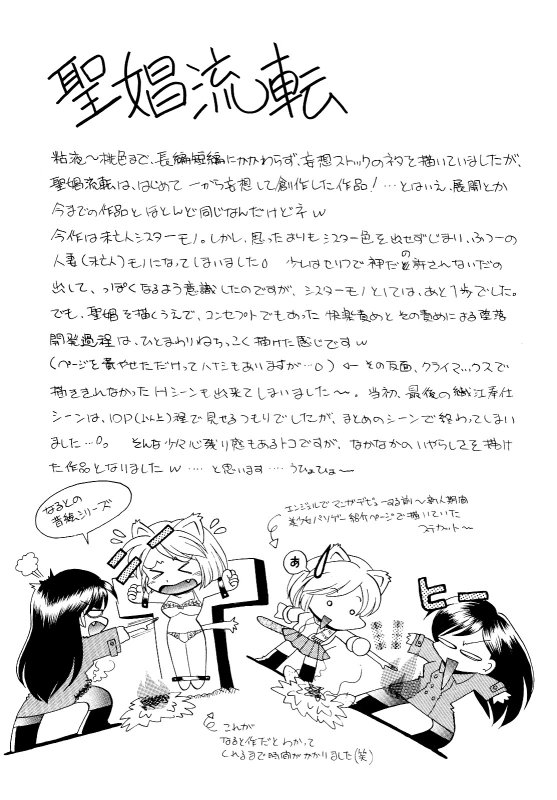 聖娼流転
粘液～桃色まで、長編短編にかかわらず、妄想ストックのネタと描いていましたが、
聖娼流転は、はじめて一から妄想して創作した作品！…とはいえ、展開とか
今までの作品とほとんど同じなんだけどネw
今作は未亡人シスターモノ。しかし、思ったよりもシスター色を出せずじまい、ふつーの
人妻(未亡人)モノになってしまいました。 少しはセリフで神だの許されないだの
出して、っぽくなるよう意識したのですが、シスターモノとしては、あと1歩でした。
でも、聖娼を描くうえで、コンセプトでもあった快楽責めとその責めによる堕落
開発過程は、ひとまわりねちっこく描けた感じですw
(ページを費やせただけってハナシもありますが…。) ← その反面、クライマックスで
描ききれなかったHシーンも出来てしまいました～。当初、最後の織江奉仕
シーンは、10P(以上)程で見せるつもりでしたが、まとめのシーンで終わってしまい
ました…。 そんな少々心残り感もあるトコですが、なかなかのいやらしさを描け
た作品となりましたw …と思います…うひょひょ～
なるとの
昔絵シリーズ
エンジェルでマンガデビューする前～新人期間
美少女パソゲー紹介ページで描いていた
ステカット～
あ
ヒーー
これが
なると作だとわかって
くれるまで時間がかかりました(笑)